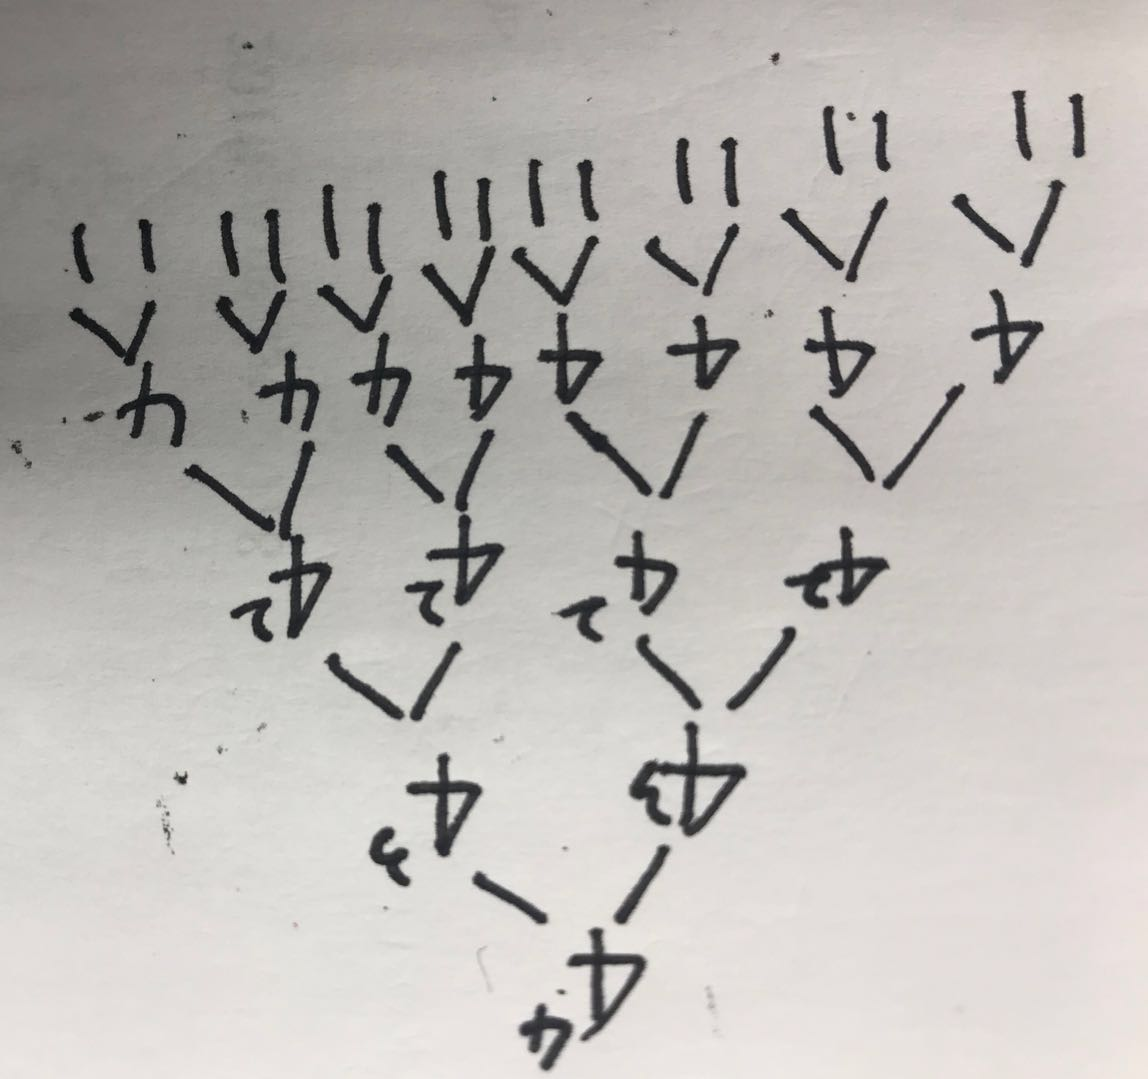 4⁴
4³ 4³
4² 4² 4² 4²
4 4 4 4 4 4 4 4
1 1 1 1 1 1 1 1 1 1 1 1 1 1 1 1